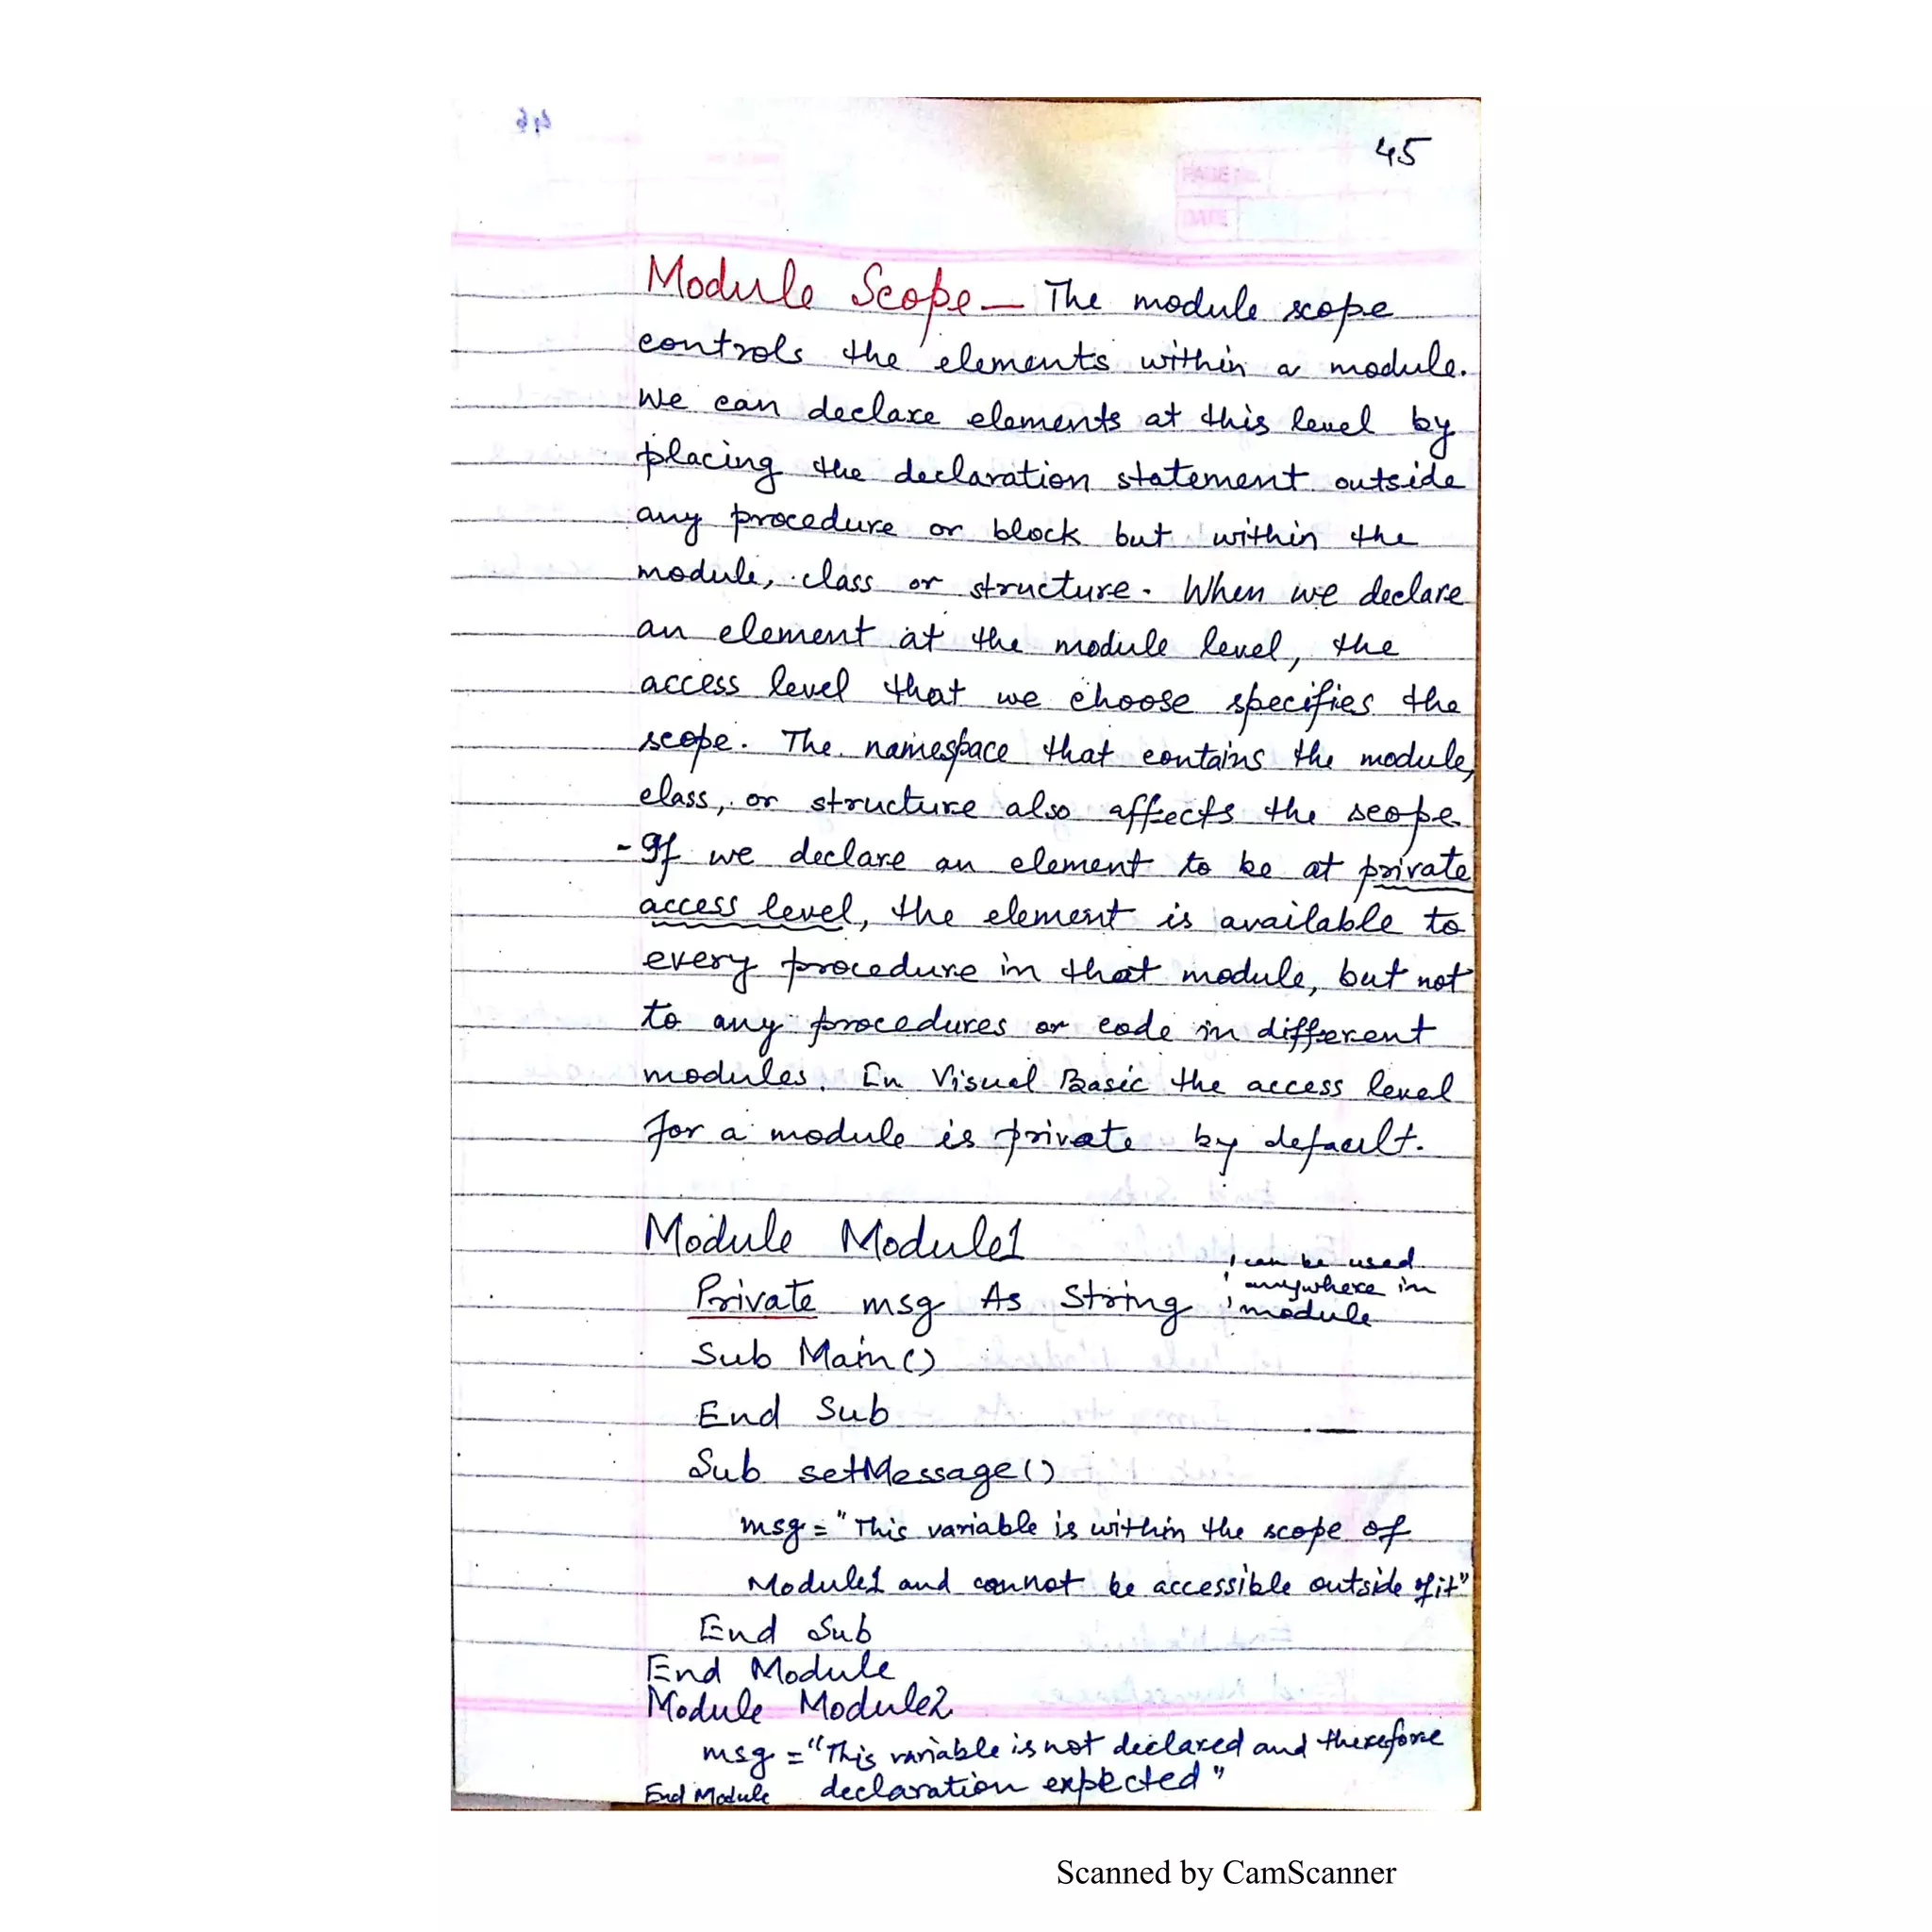 45
PAGE No.
DATE
Module Scope — The module scope
controls the elements within a module.
We can declare elements at this level by
placing the declaration statement outside
any procedure or block but within the
module, class or structure. When we declare
an element at the module level, the
access level that we choose specifies the
scope. The namespace that contains the module,
class, or structure also affects the scope.
- If we declare an element to be at private
access level, the element is available to
every procedure in that module, but not
to any procedures or code in different
modules. In Visual Basic the access level
for a module is private by default.
Module Module1
Private msg As String ' can be used
' anywhere in
' module
Sub Main()
End Sub
Sub setMessage()
msg = "This variable is within the scope of
Module1 and cannot be accessible outside of it"
End Sub
End Module
Module Module2
msg = "This variable is not declared and therefore
End Module declaration expected"
Scanned by CamScanner